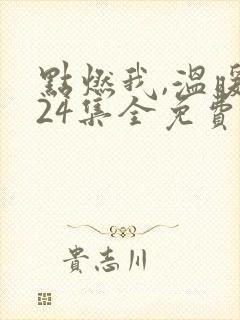 點燃我,溫暖
24集全免費
貴志川